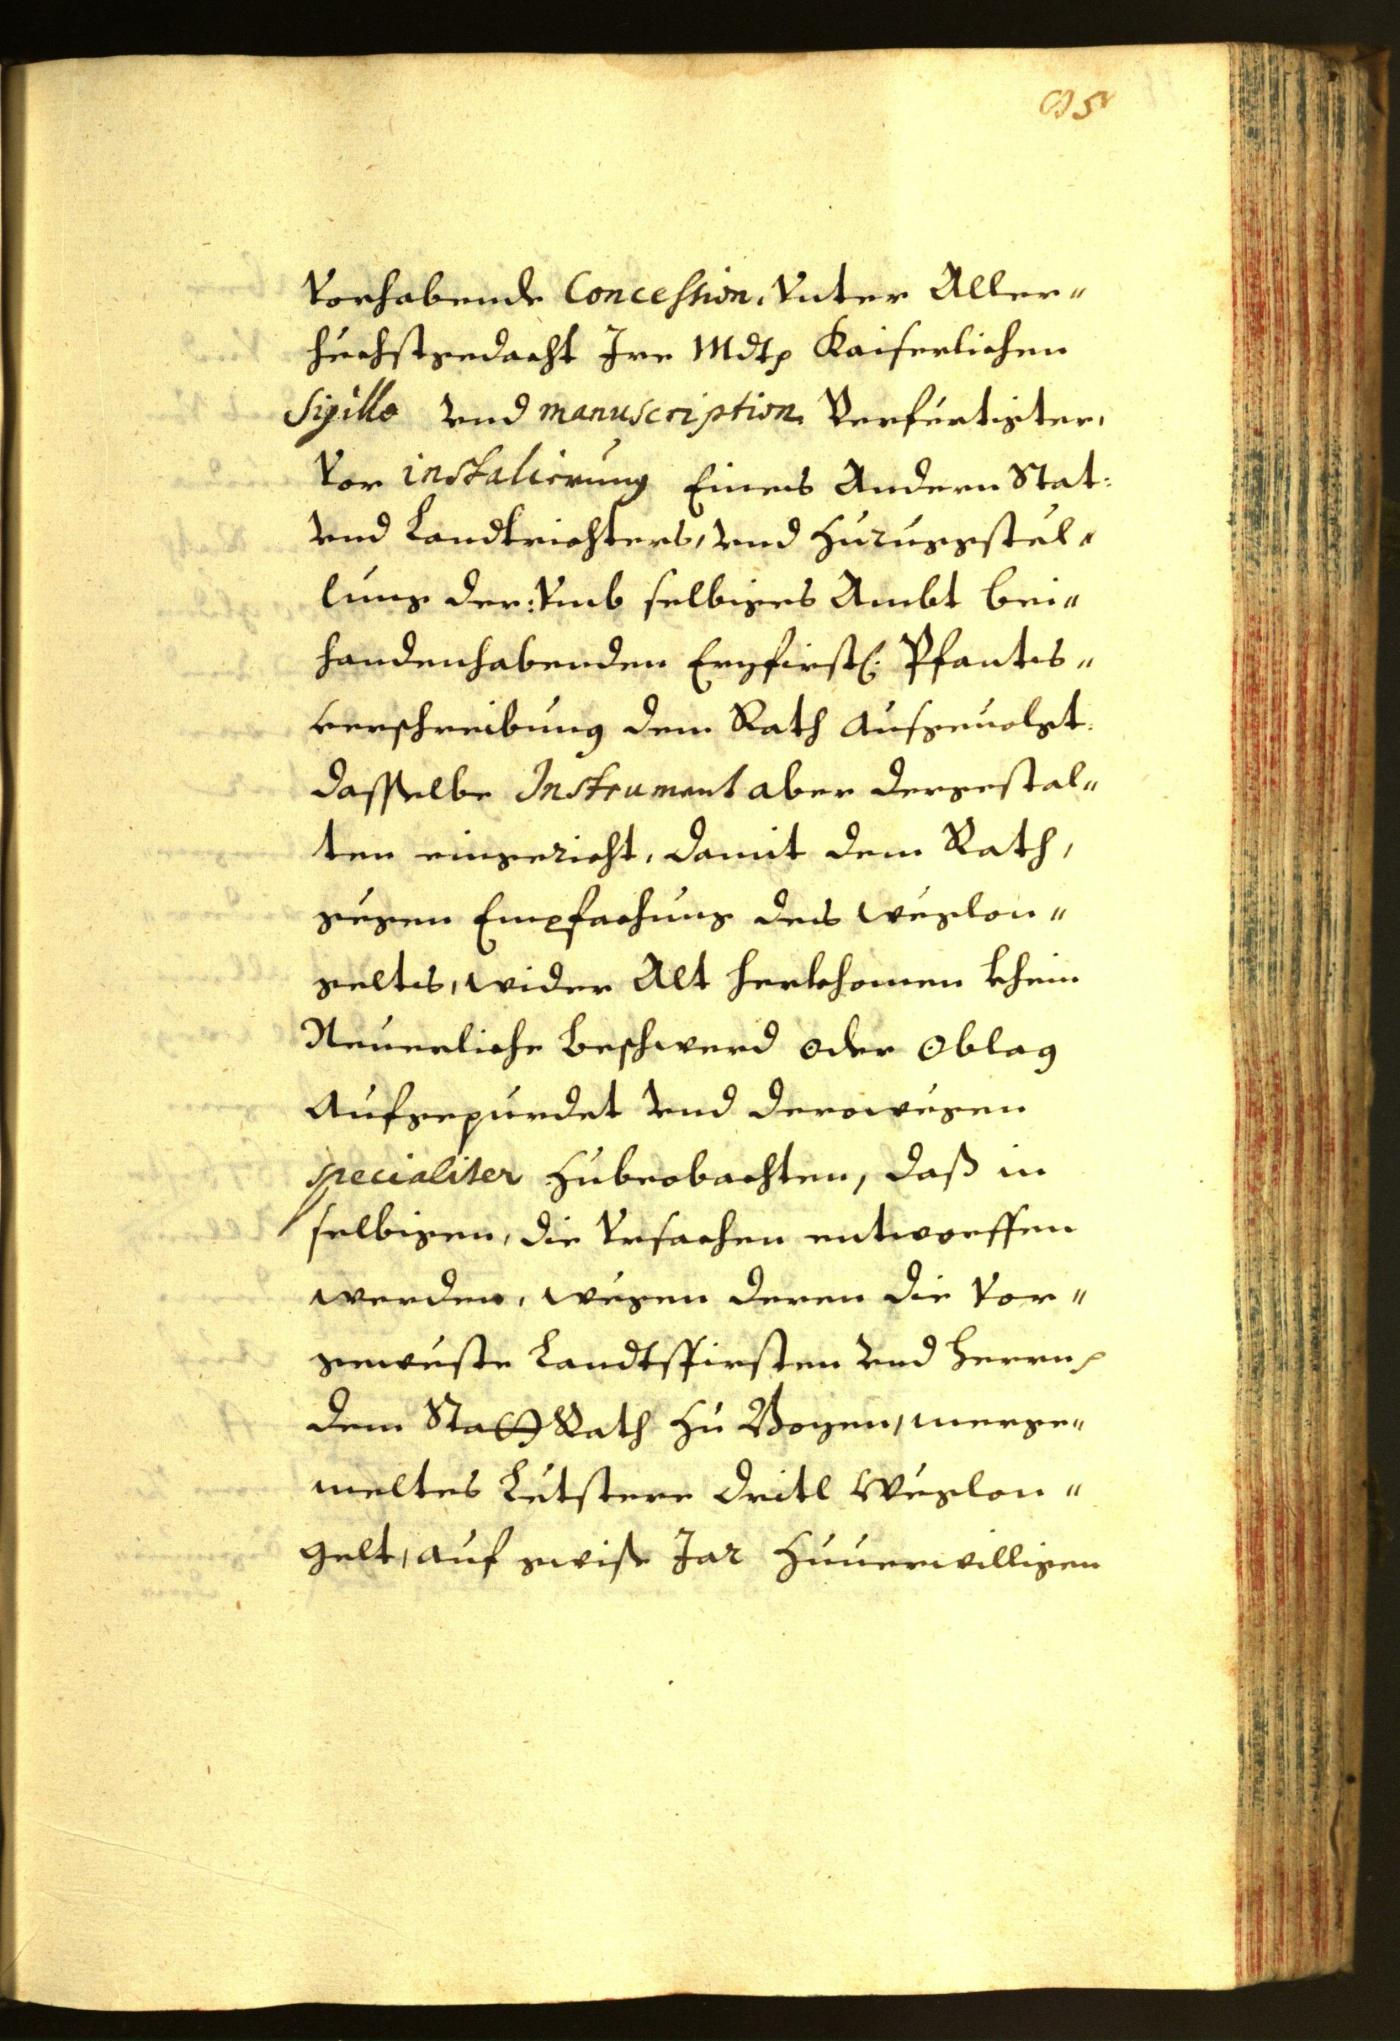 Vorhabende Concession, Vnter Aller=
höchstgedacht Irer Mdtꝫ Kaiserlichen
Sigillo vnd manuscription, Verförtigter,
Vor installierung Eines Andern Stat:
vnd Landtrichters, vnd Zuruggstöl=
lung der: Vmb selbiges Ambt bei=
handenhabenden Erzfirstl: Pfants=
verschreibung dem Rath Ausgeuolgt.
dasselbe Instrument aber dergestal=
ten eingericht, damit dem Rath,
gegen Empfachung des weglon=
geltes, wider Alt herkhomen khein
Neuerliche beschwerd oder Oblag
Aufgepürdet vnd derowegen
specialiter Zubeobachten, daß in
selbigen, die Vrsachen entworffen
werden, wegen deren die Vor=
geweste Landtsfirsten vnd Herrn
dem Statt Rath Zu Bozen, merge=
meltes Letstere dritl Weglon=
gelt, auf gwiße Jar Zuuerwilligen